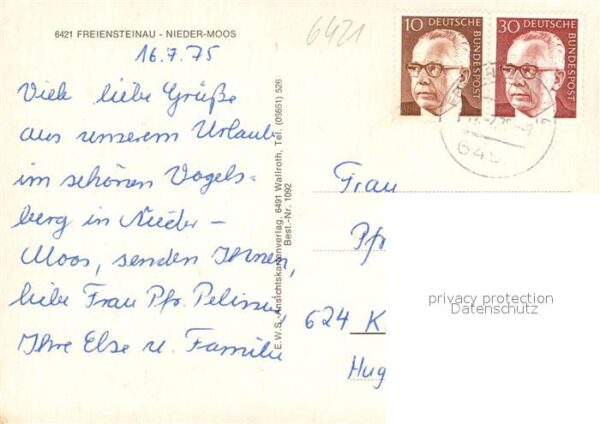 6421 FREIENSTEINAU - NIEDER-MOOS
6421
16.7.75
Viele liebe Grüße
aus unserem Urlaub
im schönen Vogels-
berg in Nieder-
Moos, senden Ihnen,
liebe Frau Pfr.
Ihre Else u. Familie
E.W.S.-Ansichtskartenverlag, 6491 Wallroth, Tel. (05661) 526
Best.-Nr. 1092
10 DEUTSCHE BUNDESPOST
30 DEUTSCHE BUNDESPOST
Frau
Pfr
624 K
Hug
privacy protection
Datenschutz